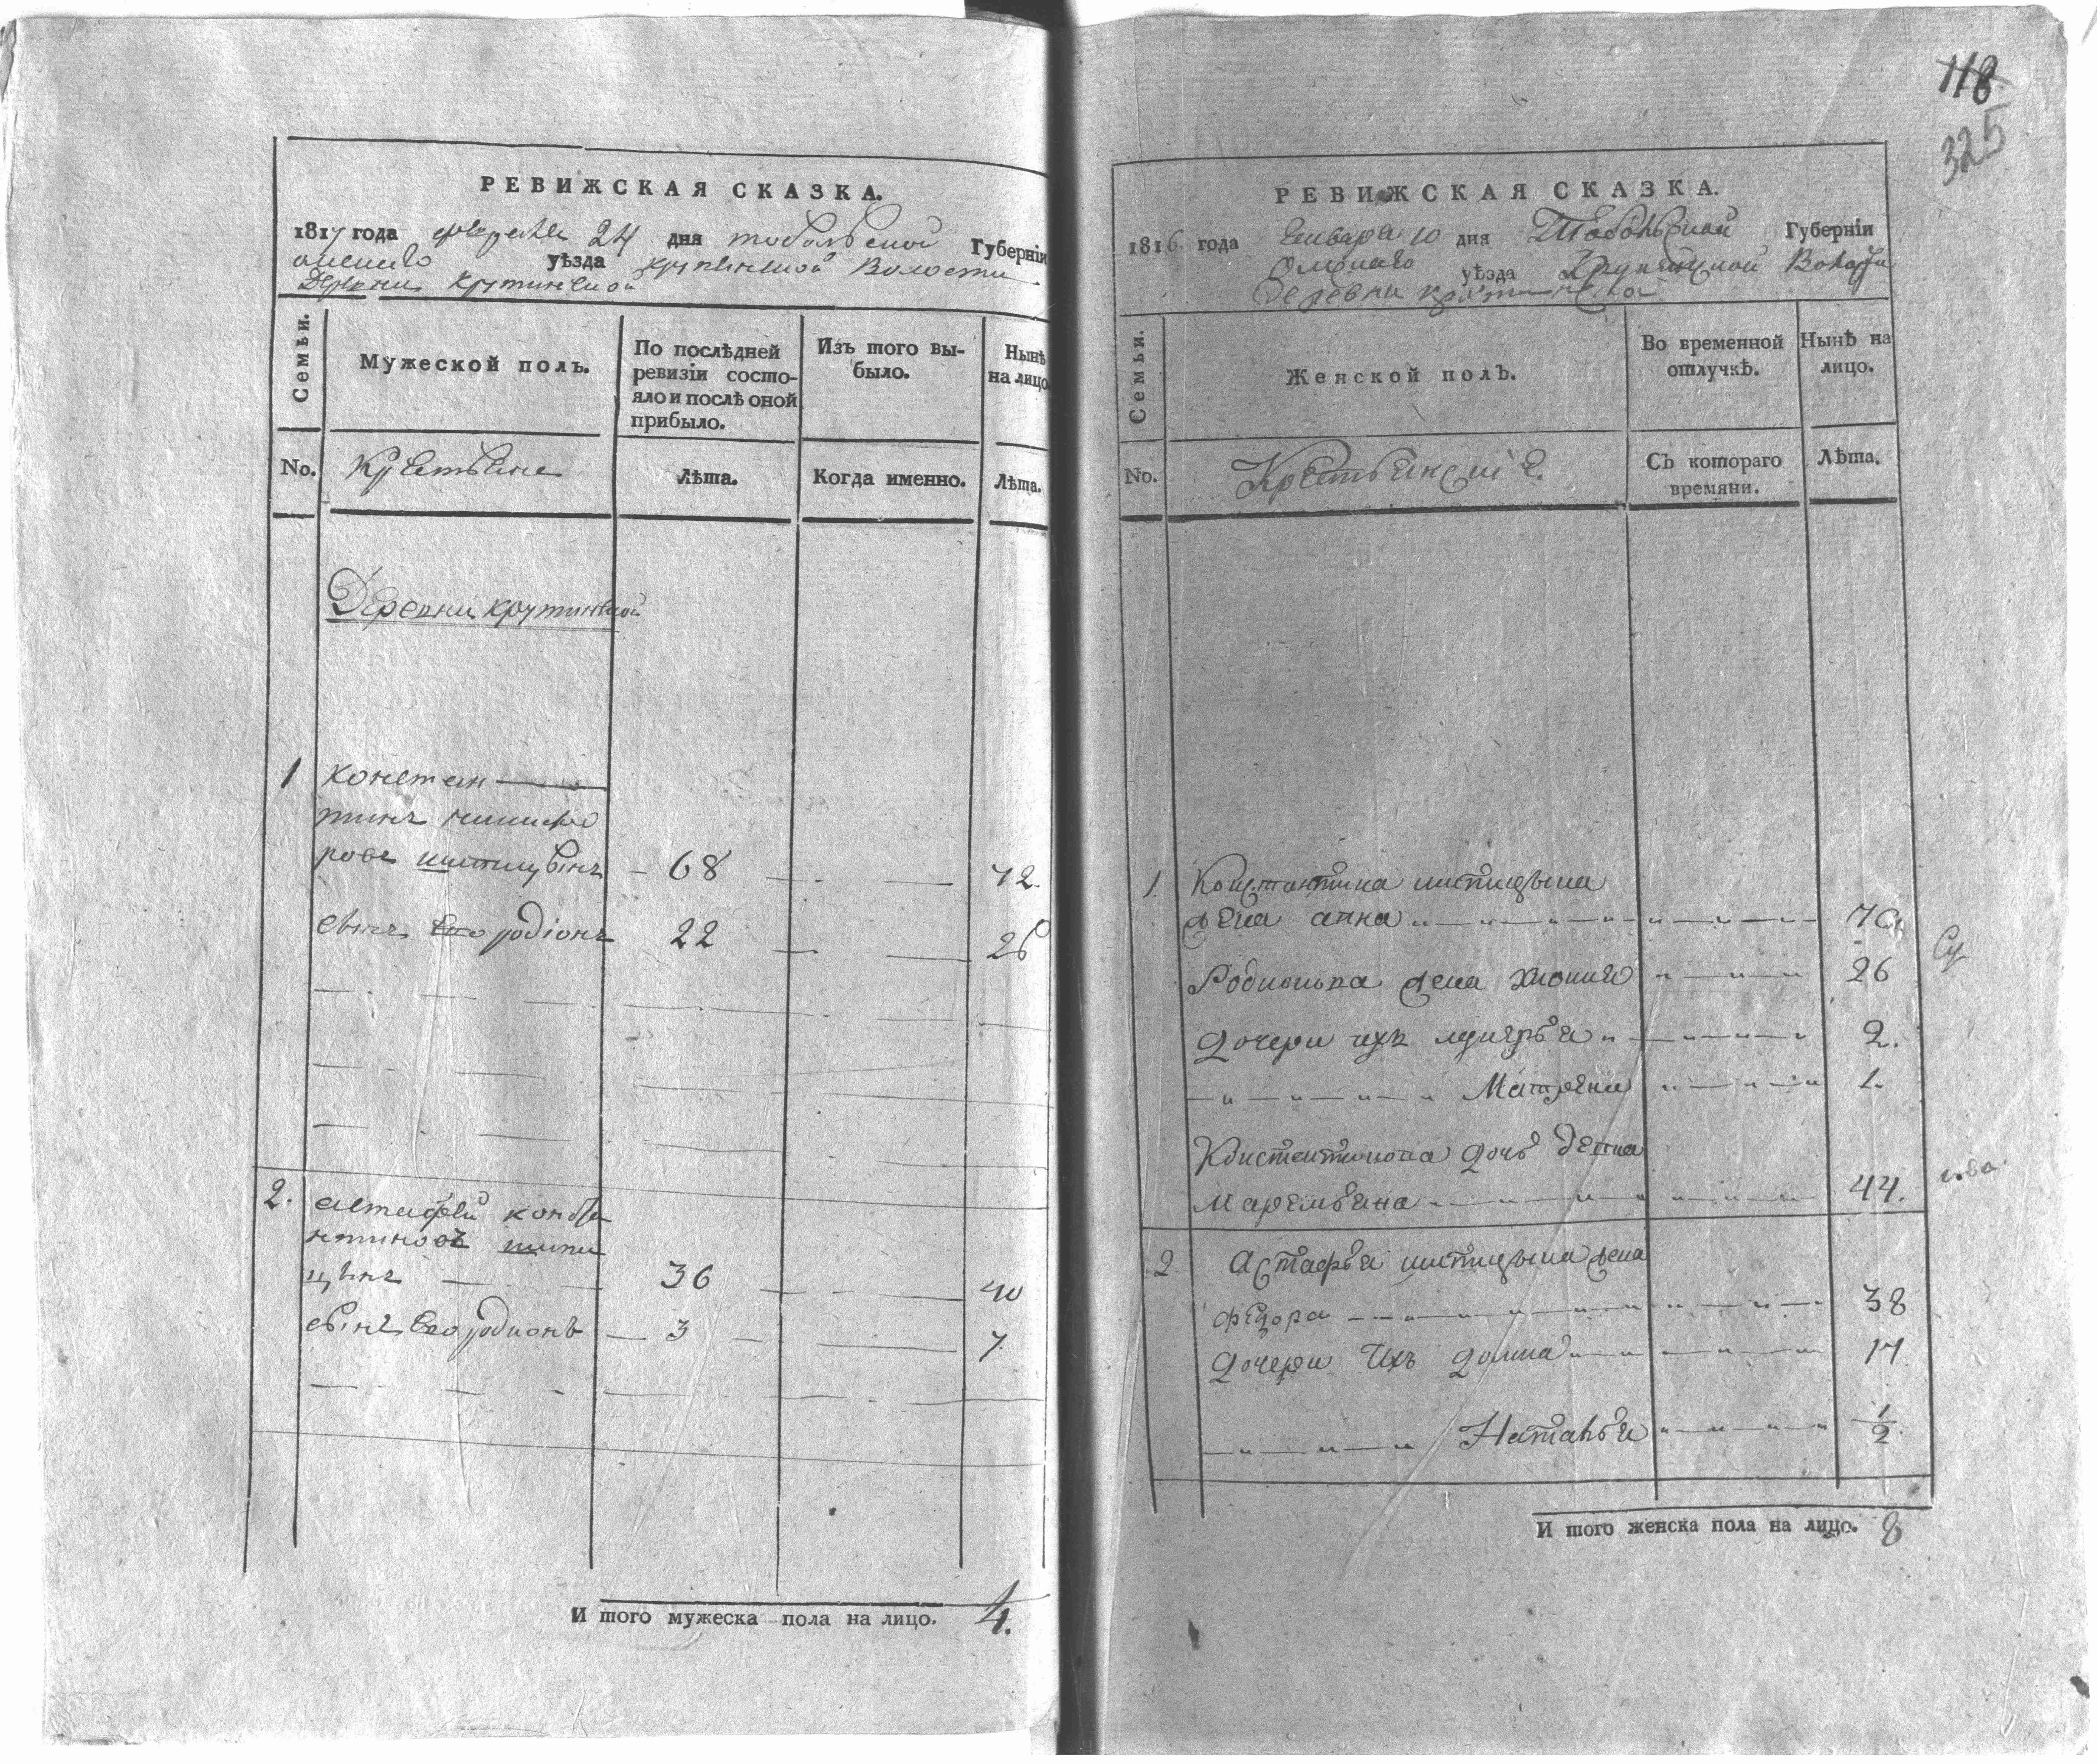 РЕВИЖСКАЯ СКАЗКА.
1817 года февраля 24 дня тобольской Губерніи
омского уѣзда крутинской Волости
Деревни Крутинской
Семьи.
Мужеской полъ.
По послѣдней
ревизіи состо-
яло и послѣ оной
прибыло.
Изъ того вы-
было.
Нынѣ
на лицо
No.
Крестьяне
Лѣта.
Когда именно.
Лѣта.
Деревни крутинской
1 констан
тинъ никифо
ровъ шипицынъ 68 72.
сынъ Его родіонъ 22 26
2. астафей конста
нтиновъ шипи
цынъ 36 40
сынъ Его родионъ 3 7
И того мужеска пола на лицо. 4.
118
325
РЕВИЖСКАЯ СКАЗКА.
1816 года Генваря 10 дня Тобольской Губерніи
Омскаго уѣзда Крутинской Волости
Деревни крутинской
Семьи.
Женской полъ.
Во временной
отлучкѣ.
Нынѣ на
лицо.
No.
Съ котораго
времяни.
Лѣта.
1. Константина шипицына
жена анна
Родионова жена 26
Дочери ихъ 2.
Матрена 1.
Константинова дочь
44.
2 Астафья шипицына жена
федора 38
Дочери Ихъ домна 17.
Наталья 1/2
И того женска пола на лицо. 8